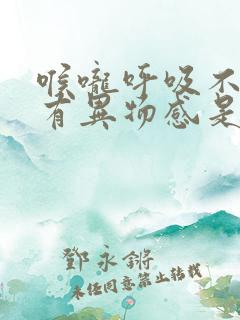 喉嚨呼吸不
有異物感是
鄧永鏘
未任同意禁止转载